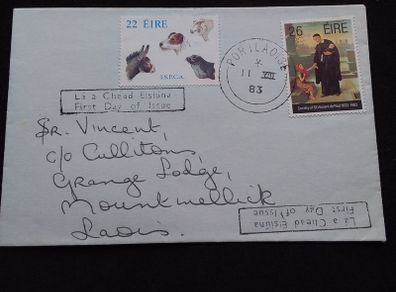 22 ÉIRE
I.S.P.C.A.
PORTLAOISE
11 VIII
83
26 ÉIRE
Society of St Vincent de Paul 1833-1983
Lá a Chead Eisiúna
First Day of Issue
Sr. Vincent,
c/o Cullitons,
Grange Lodge,
Mountmellick
Laois.
Lá a Chead Eisiúna
First Day of Issue